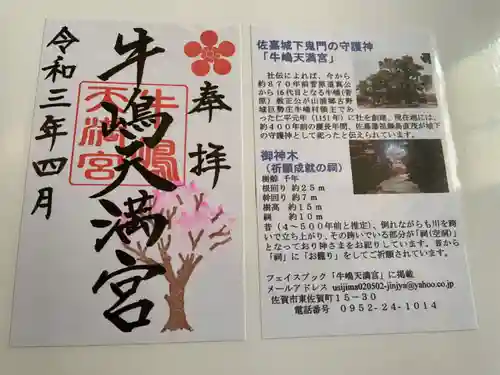 奉拝
牛嶋天満宮
牛嶋
天満宮
令和三年四月
佐嘉城下鬼門の守護神
「牛嶋天満宮」
社伝によれば、今から
約870年前菅原道真公
から16代目となる牛嶋(菅
原)教正公が山浦郷吉野
城巨勢庄牛嶋村領主であ
った仁平元年(1151年)に社を創建、現在地には、
約400年前の慶長年間、佐嘉藩祖鍋島直茂が城下
の守護神として祀ったと伝えられています。
御神木
(祈願成就の祠)
樹齢 千年
根回り 約25m
幹回り 約7m
樹高 約15m
祠 約10m
昔(4~500年前と推定)、倒れながらも川を跨
いで立ち上がり、その跨いでいる部分が「祠(空洞)」
となっており神さまをお祀りしています。昔から
「祠」に「お籠り」をしてご祈願されています。
フェイスブック「牛嶋天満宮」に掲載
メールアドレス usijima020502-jinjya@yahoo.co.jp
佐賀市東佐賀町15-30
電話番号 0952-24-1014